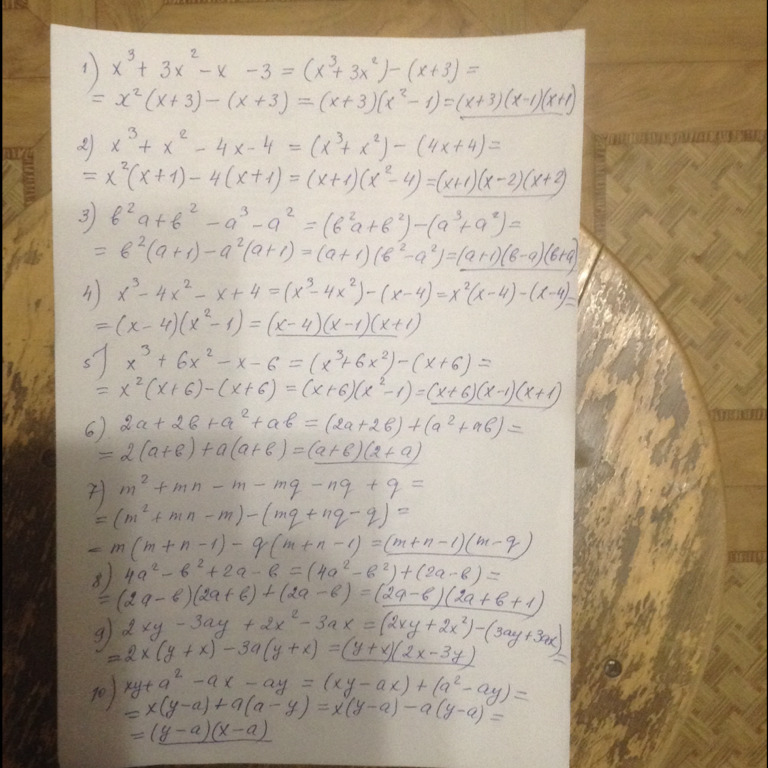 1) x³ + 3x² - x - 3 = (x³ + 3x²) - (x+3) =
= x²(x+3) - (x+3) = (x+3)(x²-1) = (x+3)(x-1)(x+1)
2) x³ + x² - 4x - 4 = (x³ + x²) - (4x+4) =
= x²(x+1) - 4(x+1) = (x+1)(x²-4) = (x+1)(x-2)(x+2)
3) в²a + в² - a³ - a² = (в²a + в²) - (a³ + a²) =
= в²(a+1) - a²(a+1) = (a+1)(в²-a²) = (a+1)(в-a)(в+a)
4) x³ - 4x² - x + 4 = (x³ - 4x²) - (x-4) = x²(x-4) - (x-4) =
= (x-4)(x²-1) = (x-4)(x-1)(x+1)
5) x³ + 6x² - x - 6 = (x³ + 6x²) - (x+6) =
= x²(x+6) - (x+6) = (x+6)(x²-1) = (x+6)(x-1)(x+1)
6) 2a + 2в + a² + aв = (2a+2в) + (a² + aв) =
= 2(a+в) + a(a+в) = (a+в)(2+a)
7) m² + mn - m - mq - nq + q =
= (m² + mn - m) - (mq + nq - q) =
= m(m+n-1) - q(m+n-1) = (m+n-1)(m-q)
8) 4a² - в² + 2a - в = (4a² - в²) + (2a-в) =
= (2a-в)(2a+в) + (2a-в) = (2a-в)(2a+в+1)
9) 2xy - 3ay + 2x² - 3ax = (2xy + 2x²) - (3ay + 3ax) =
= 2x(y+x) - 3a(y+x) = (y+x)(2x-3y)
10) xy + a² - ax - ay = (xy - ax) + (a² - ay) =
= x(y-a) + a(a-y) = x(y-a) - a(y-a) =
= (y-a)(x-a)